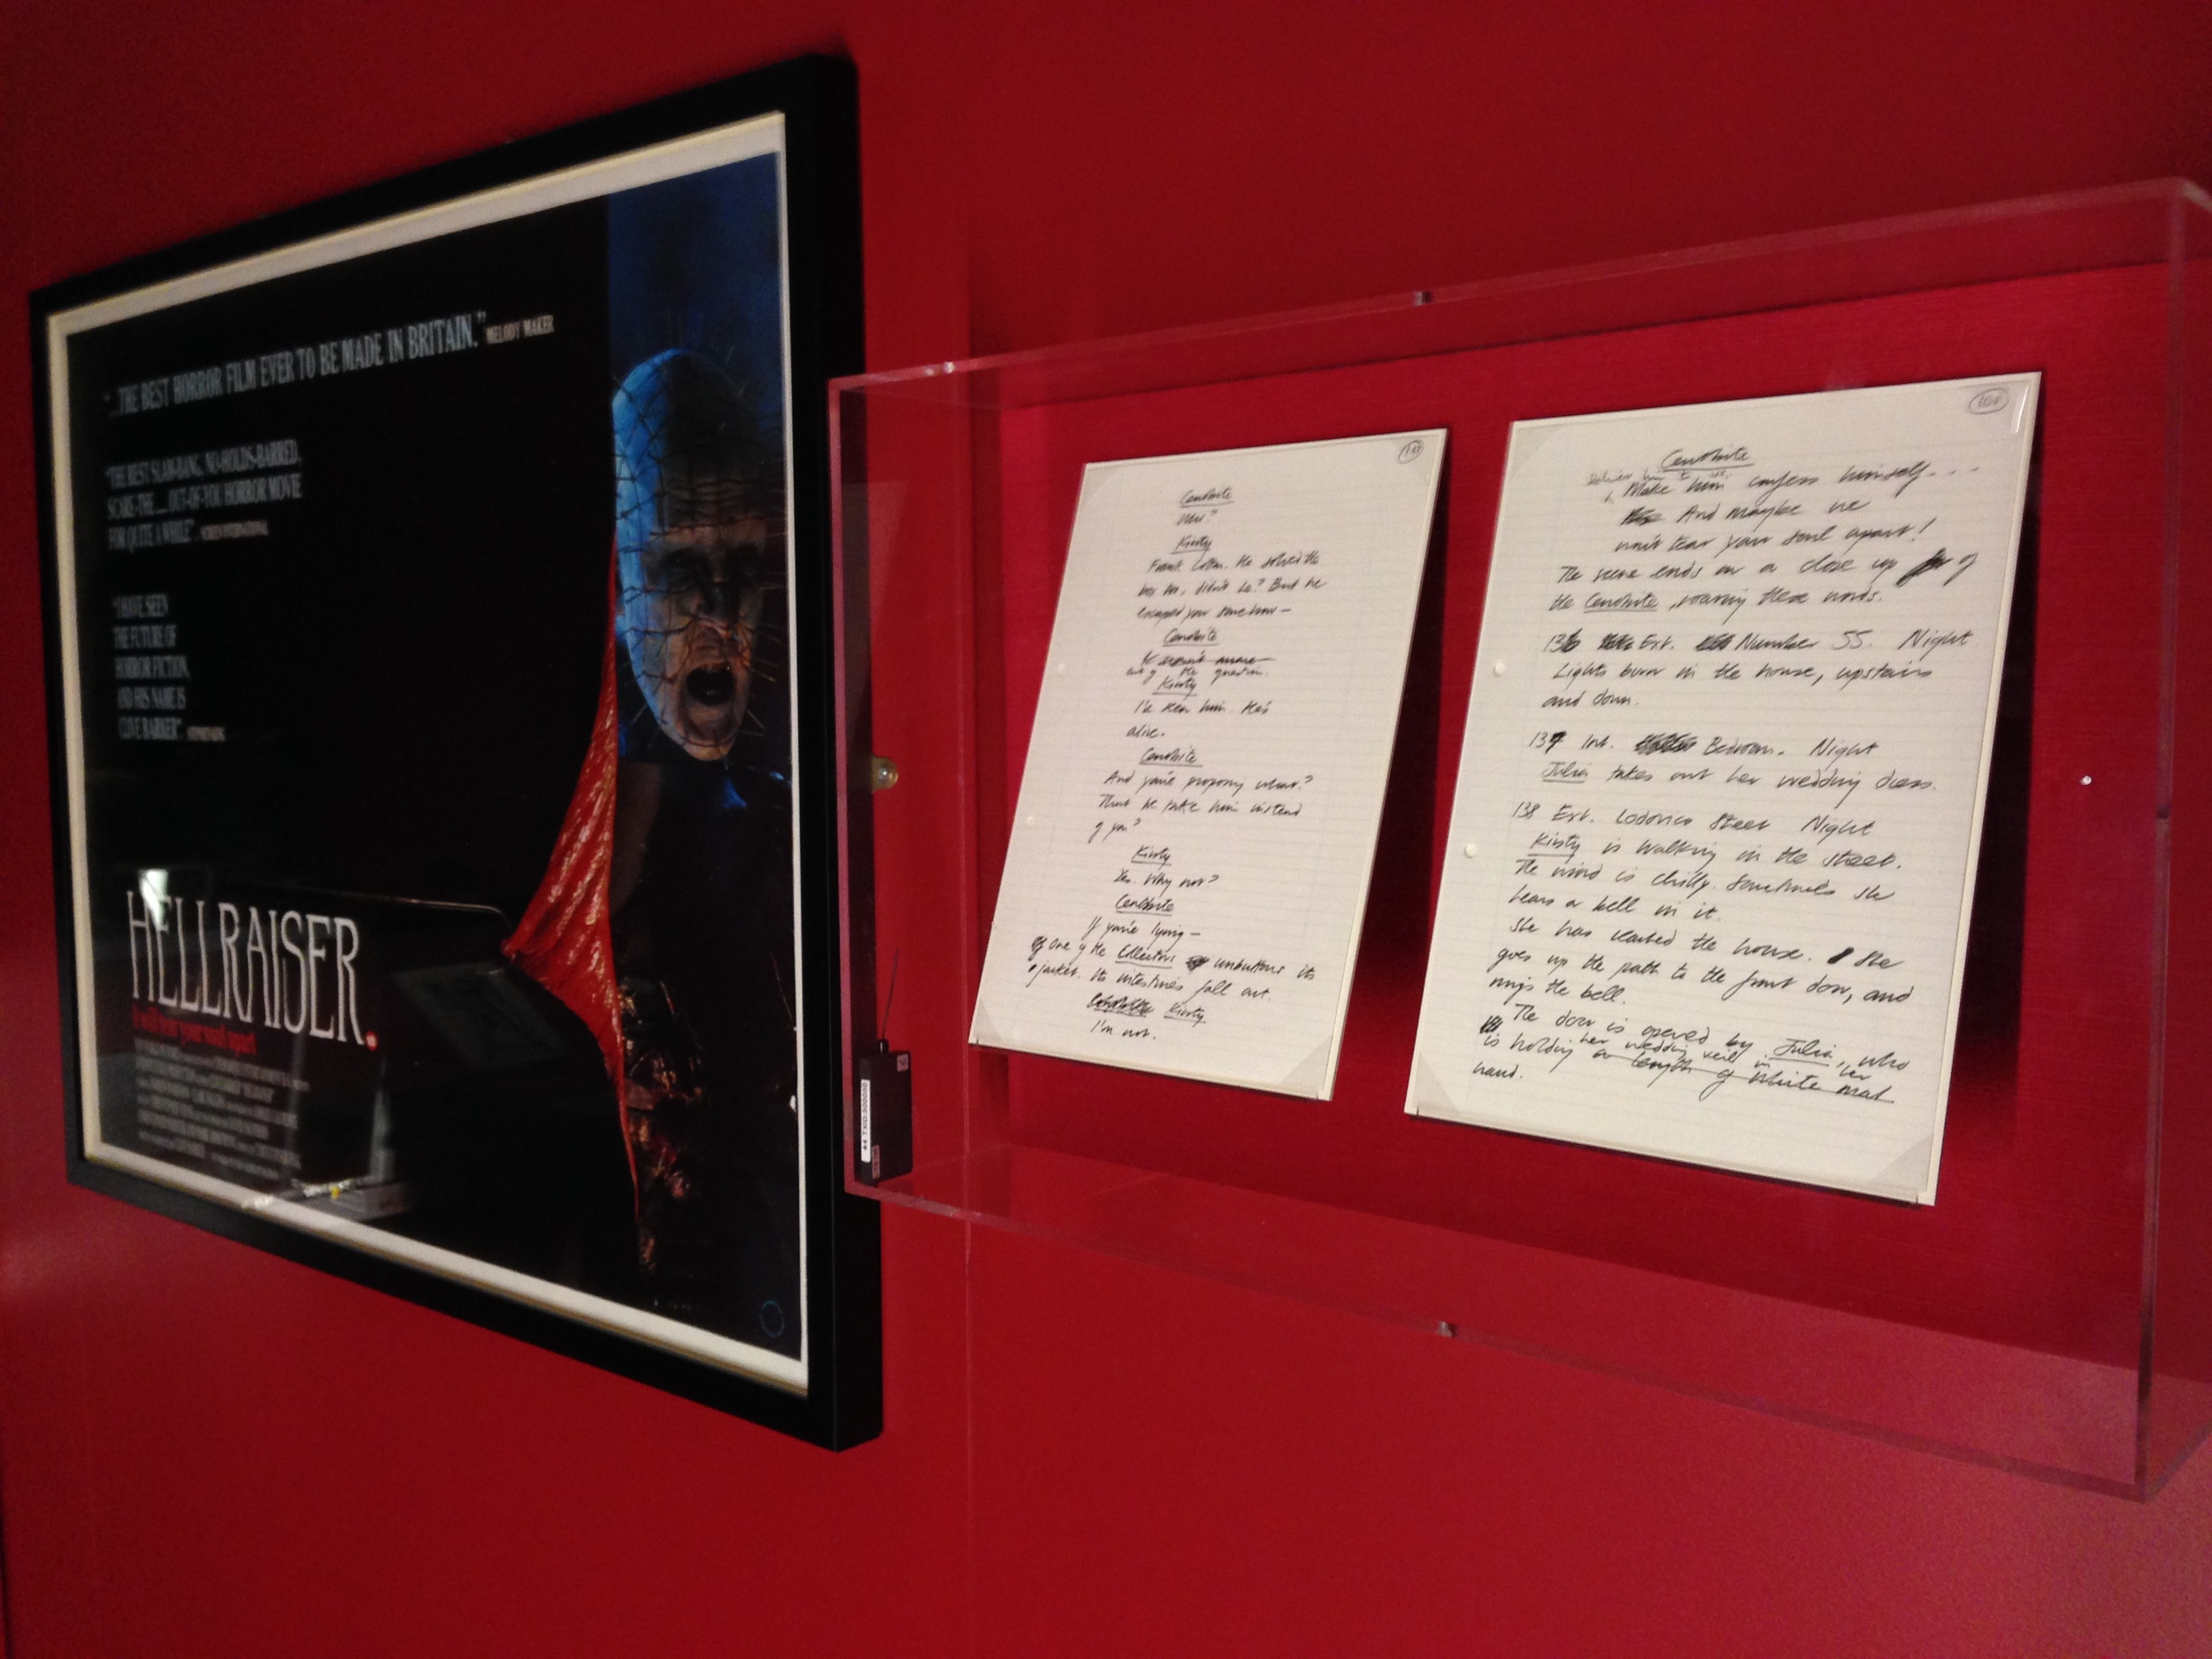 "...THE BEST HORROR FILM EVER TO BE MADE IN BRITAIN." MELODY MAKER
"THE BEST SLAM-BANG, NO-HOLDS-BARRED,
SCARE-THE....OUT-OF-YOU HORROR MOVIE
FOR QUITE A WHILE". SCREEN INTERNATIONAL
"I HAVE SEEN
THE FUTURE OF
HORROR FICTION,
AND HIS NAME IS
CLIVE BARKER". STEPHEN KING
HELLRAISER.
It will tear your soul apart
Cenobite
Who?
Kirsty
Frank Cotton. He solved the
box too, didn't he? But he
escaped you somehow —
Cenobite
out of the question.
Kirsty
I've seen him. He's
alive.
Cenobite
And you're proposing what?
That we take him instead
of you?
Kirsty
Yes. Why not?
Cenobite
If you're lying —
One of the Collectors unbuttons its
jacket. Its intestines fall out.
Kirsty
I'm not.
Cenobite
Deliver him to us.
Make him confess himself...
And maybe we
won't tear your soul apart!
The scene ends on a close up of
the Cenobite, roaring these words.
136 Ext. Number 55. Night
Lights burn in the house, upstairs
and down.
137 Int. Bedroom. Night
Julia takes out her wedding dress.
138 Ext. Lodovico Street Night
Kirsty is walking in the street.
The wind is chilly. Sometimes she
hears a bell in it.
She has reached the house. She
goes up the path to the front door, and
rings the bell.
The door is opened by Julia, who
her wedding veil in her
is holding a length of white mat
hand.